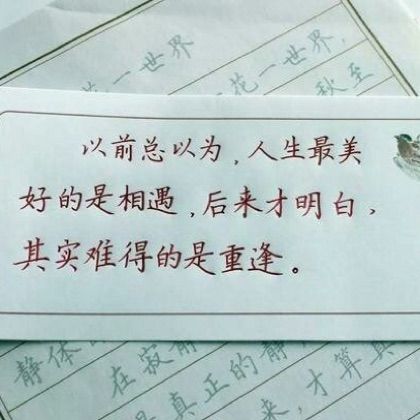 花一世界
花一世界,
秋至
以前总以为,人生最美
好的是相遇,后来才明白,
其实难得的是重逢。
静体的
在寂静
是真正的静
来,才算真